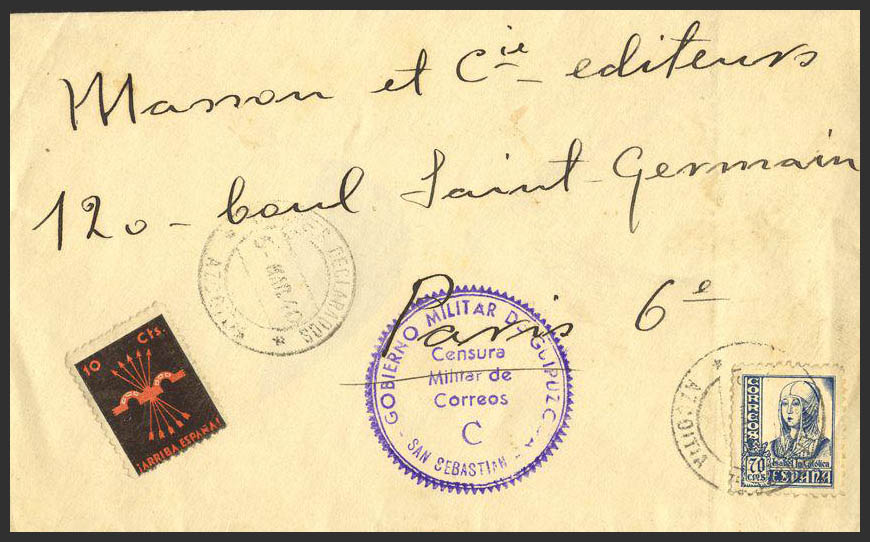 Masson et Cie editeurs
120 - boul Saint-Germain
Paris 6e
DECLARADOS
MAR.40
10 Cts.
¡ARRIBA ESPAÑA!
GOBIERNO MILITAR DE GUIPUZCOA
Censura
Militar de
Correos
C
SAN SEBASTIAN
AZCOITIA
CORREOS
70
CTS
Isabel la Católica
ESPAÑA